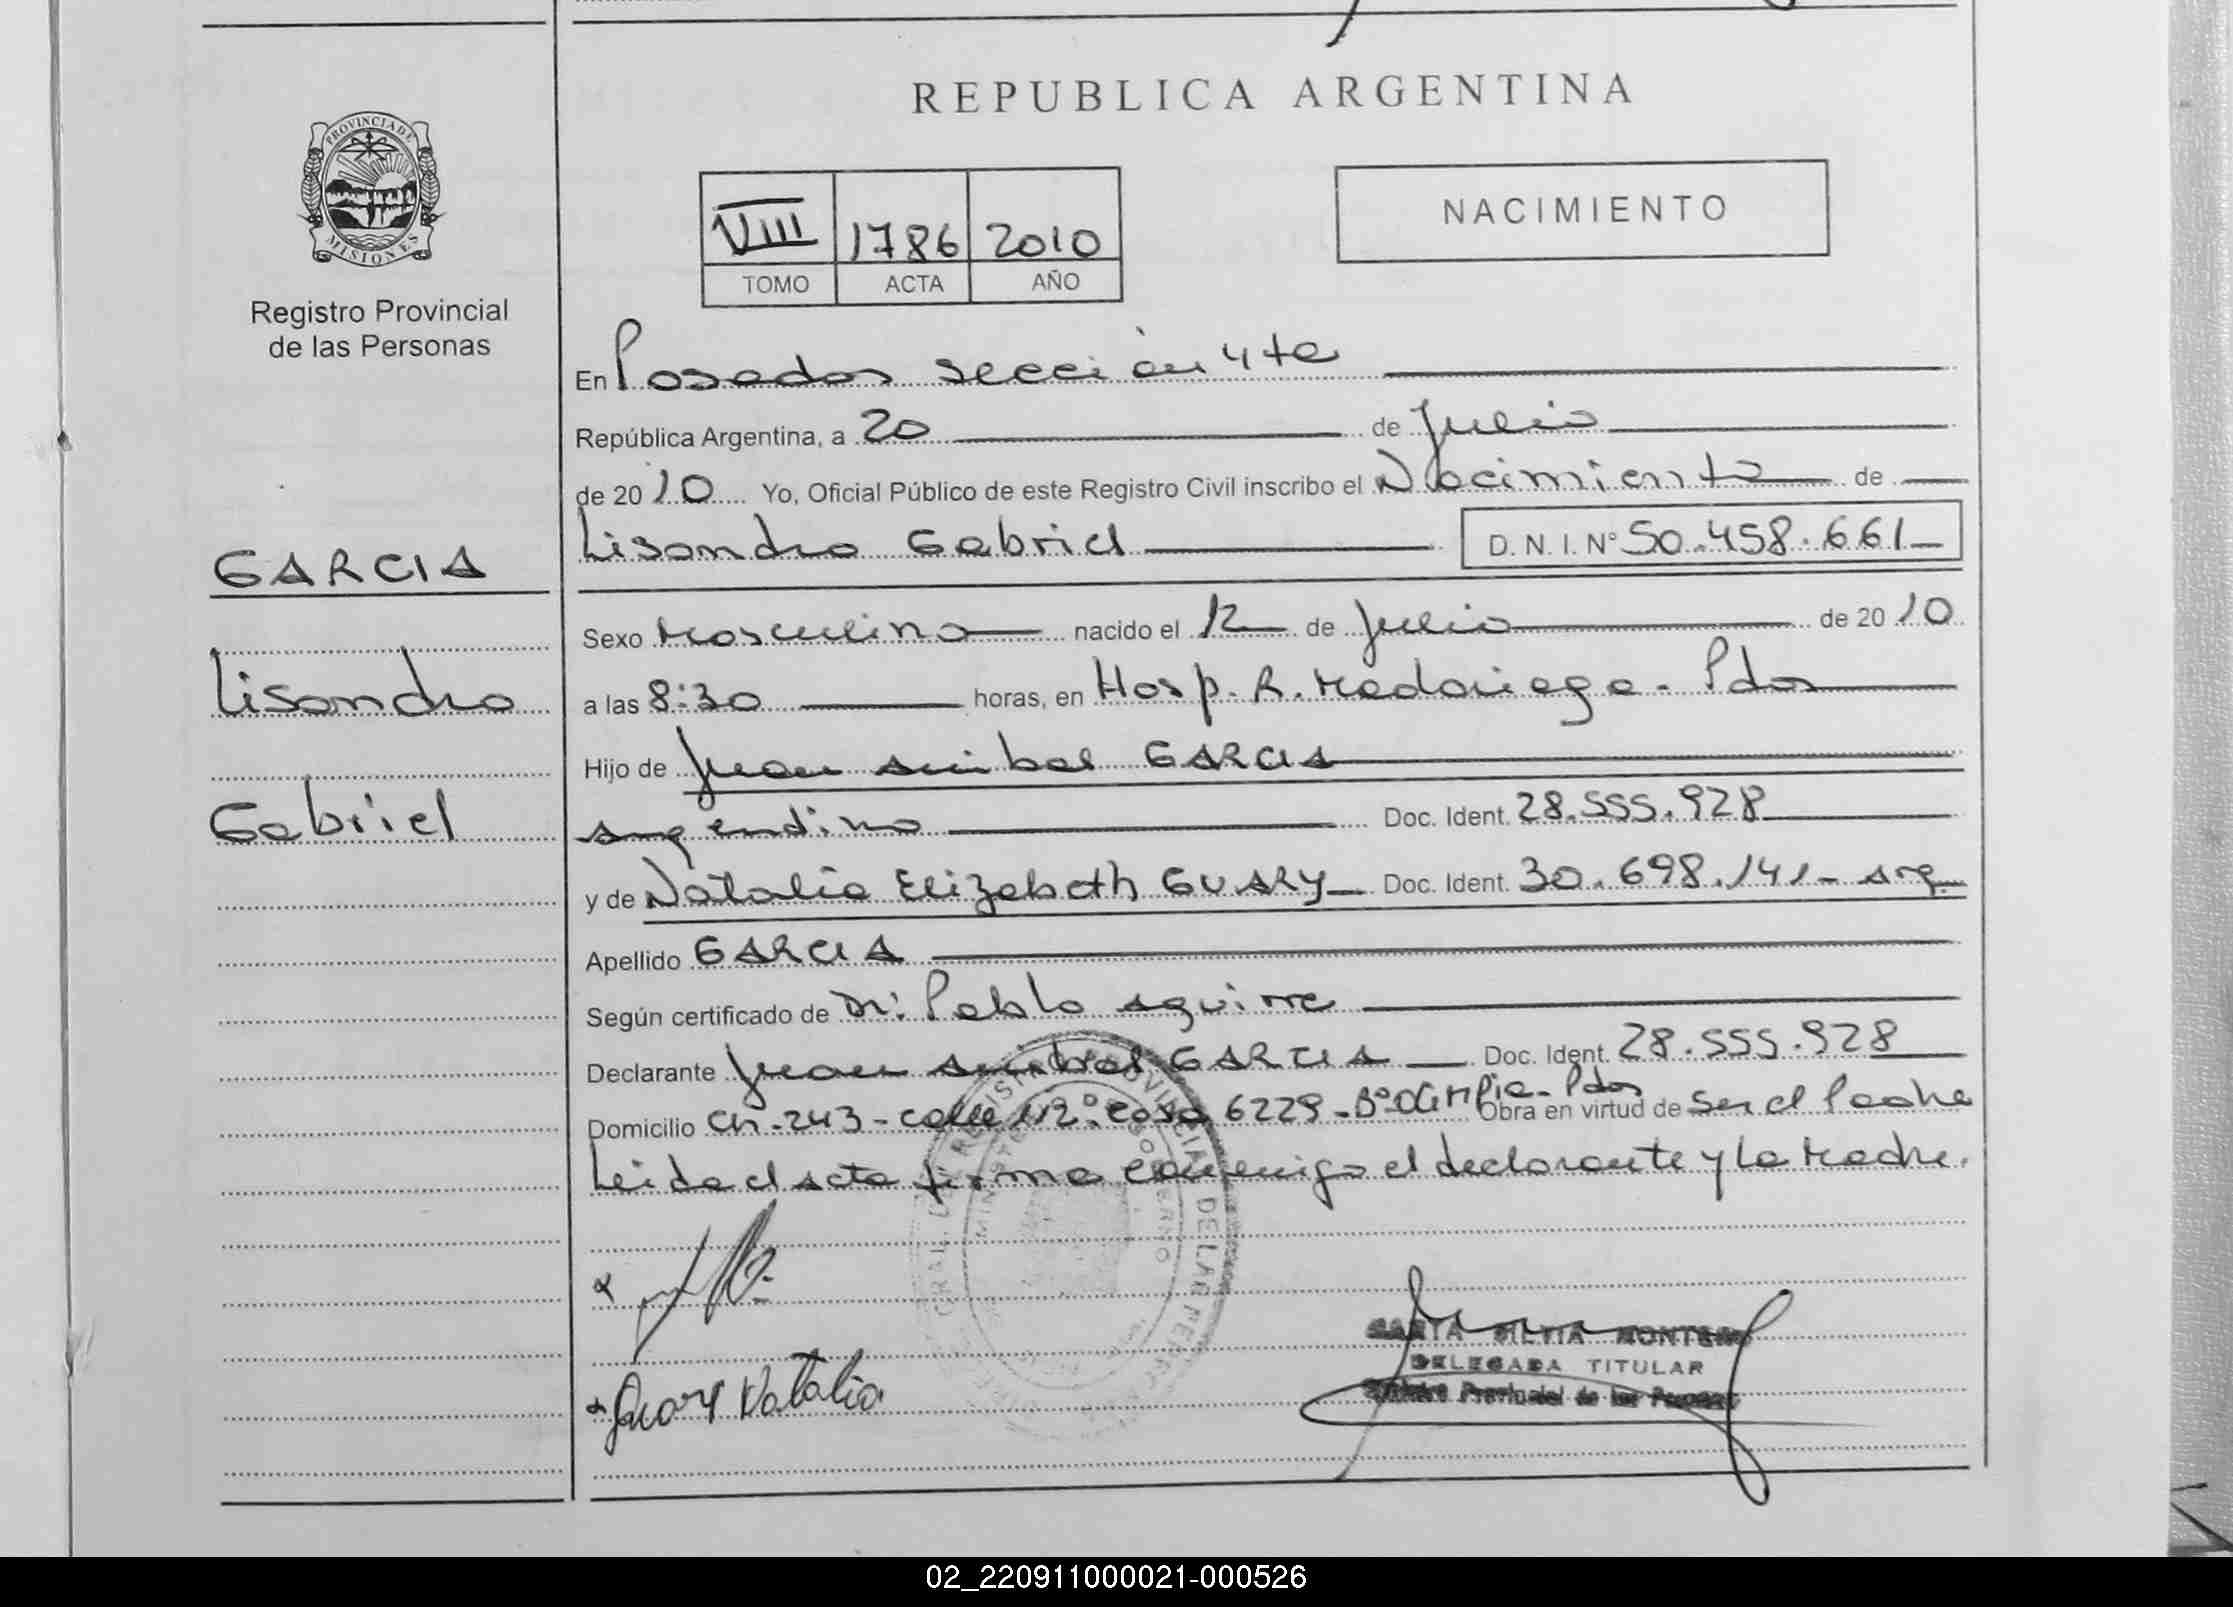 REPUBLICA ARGENTINA
PROVINCIA DE
MISIONES
Registro Provincial
de las Personas
VIII 1786 2010
TOMO ACTA AÑO
NACIMIENTO
En Posadas sección 4ta
República Argentina, a 20 de Julio
de 2010 Yo, Oficial Público de este Registro Civil inscribo el Nacimiento de
Lisandro Gabriel D. N. I. N° 50.458.661
GARCIA
Lisandro
Gabriel
Sexo Masculino nacido el 12 de Julio de 2010
a las 8:30 horas, en Hosp. R. Madariaga - Pdas
Hijo de Juan Anibal GARCIA
argentino Doc. Ident. 28.555.928
y de Natalia Elizabeth GUARY Doc. Ident. 30.698.141 - arg.
Apellido GARCIA
Según certificado de Dr. Pablo Aguirre
Declarante Juan Anibal GARCIA Doc. Ident. 28.555.928
Domicilio Ch-243-calle 112° casa 6229-B° Pdas Obra en virtud de ser el Padre
Leida el acta firma conmigo el declarante y la Madre.
Guary Natalia
SILVIA MONTERO
DELEGADA TITULAR
Provincial de las Personas
02_220911000021-000526